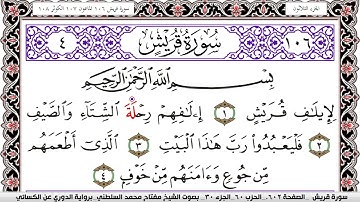 سورة قريش ١٠٦ الماعون ١٠٧ الكوثر ١٠٨
الجزء الثلاثون
١٠٦
سُورَةُ قُرَيْشٍ
٤
بِسْمِ ٱللَّهِ ٱلرَّحْمَٰنِ ٱلرَّحِيمِ
لِإِيلَٰفِ قُرَيْشٍ ١ إِۦلَٰفِهِمْ رِحْلَةَ ٱلشِّتَآءِ وَٱلصَّيْفِ
٢ فَلْيَعْبُدُوا۟ رَبَّ هَٰذَا ٱلْبَيْتِ ٣ ٱلَّذِىٓ أَطْعَمَهُم
مِّن جُوعٍ وَءَامَنَهُم مِّنْ خَوْفٍۭ ٤
سورة قريش . الصفحة ٦٠٢. الحزب ٦٠. الجزء ٣٠ . بصوت الشيخ مفتاح محمد السلطني . برواية الدوري عن الكسائي